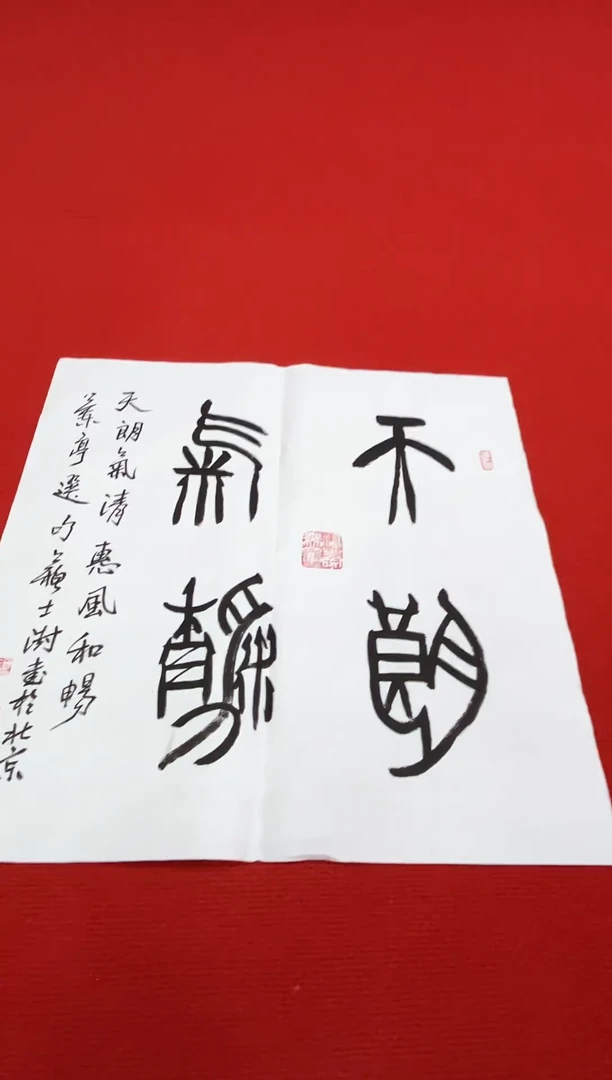 天朗
氣清
天朗氣清惠風和暢
蘭亭選句蘇士澍書於北京